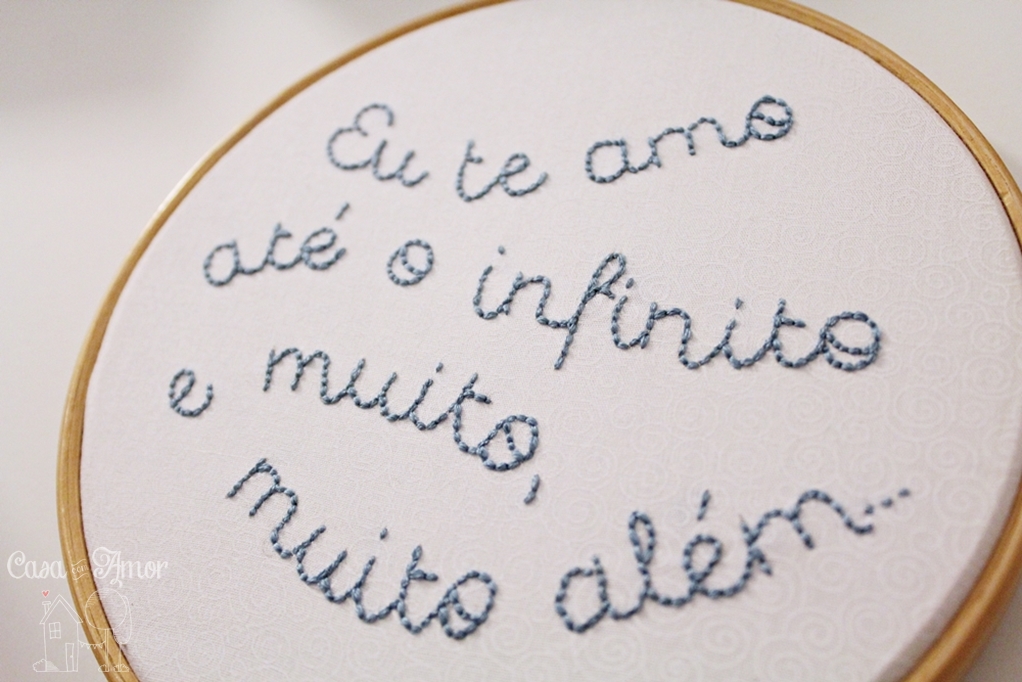 Eu te amo
até o infinito
e muito,
muito além...
Casa com Amor